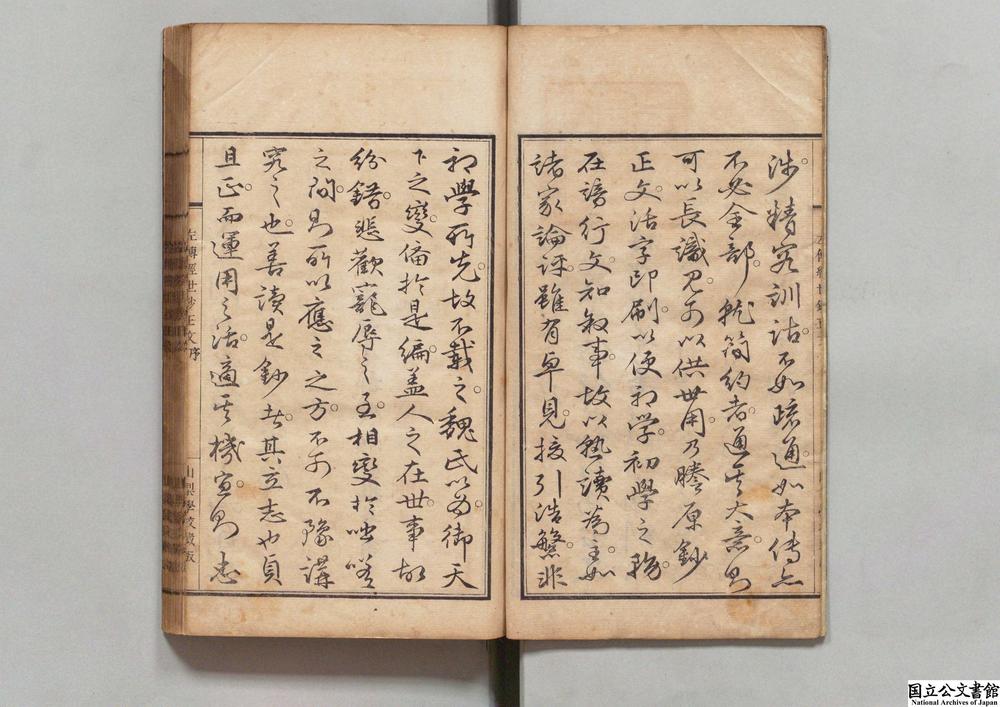 渉精密訓詁。不如疏通。如本傳亦
不必全部。就簡約者通其大意。則
可以長識見。可以供世用。乃謄原鈔
正文。活字印刷。以便初学。初學之務。
在諳行文。知叙事。故以熟讀為主。如
諸家論評。雖有卓見。援引浩繁。非
初學所先。故不載之。魏氏以為御天
下之變。備於是編。蓋人之在世。事故
紛錯。悲歡寵辱之至。相變於咄嗟
之間。則所以應之之方。不可不豫講
究之也。善讀是鈔者。其立志也貞
且正。而運用之活。適其機宜。則志
左傳經世鈔正文序
山梨學校藏版
国立公文書館
National Archives of Japan